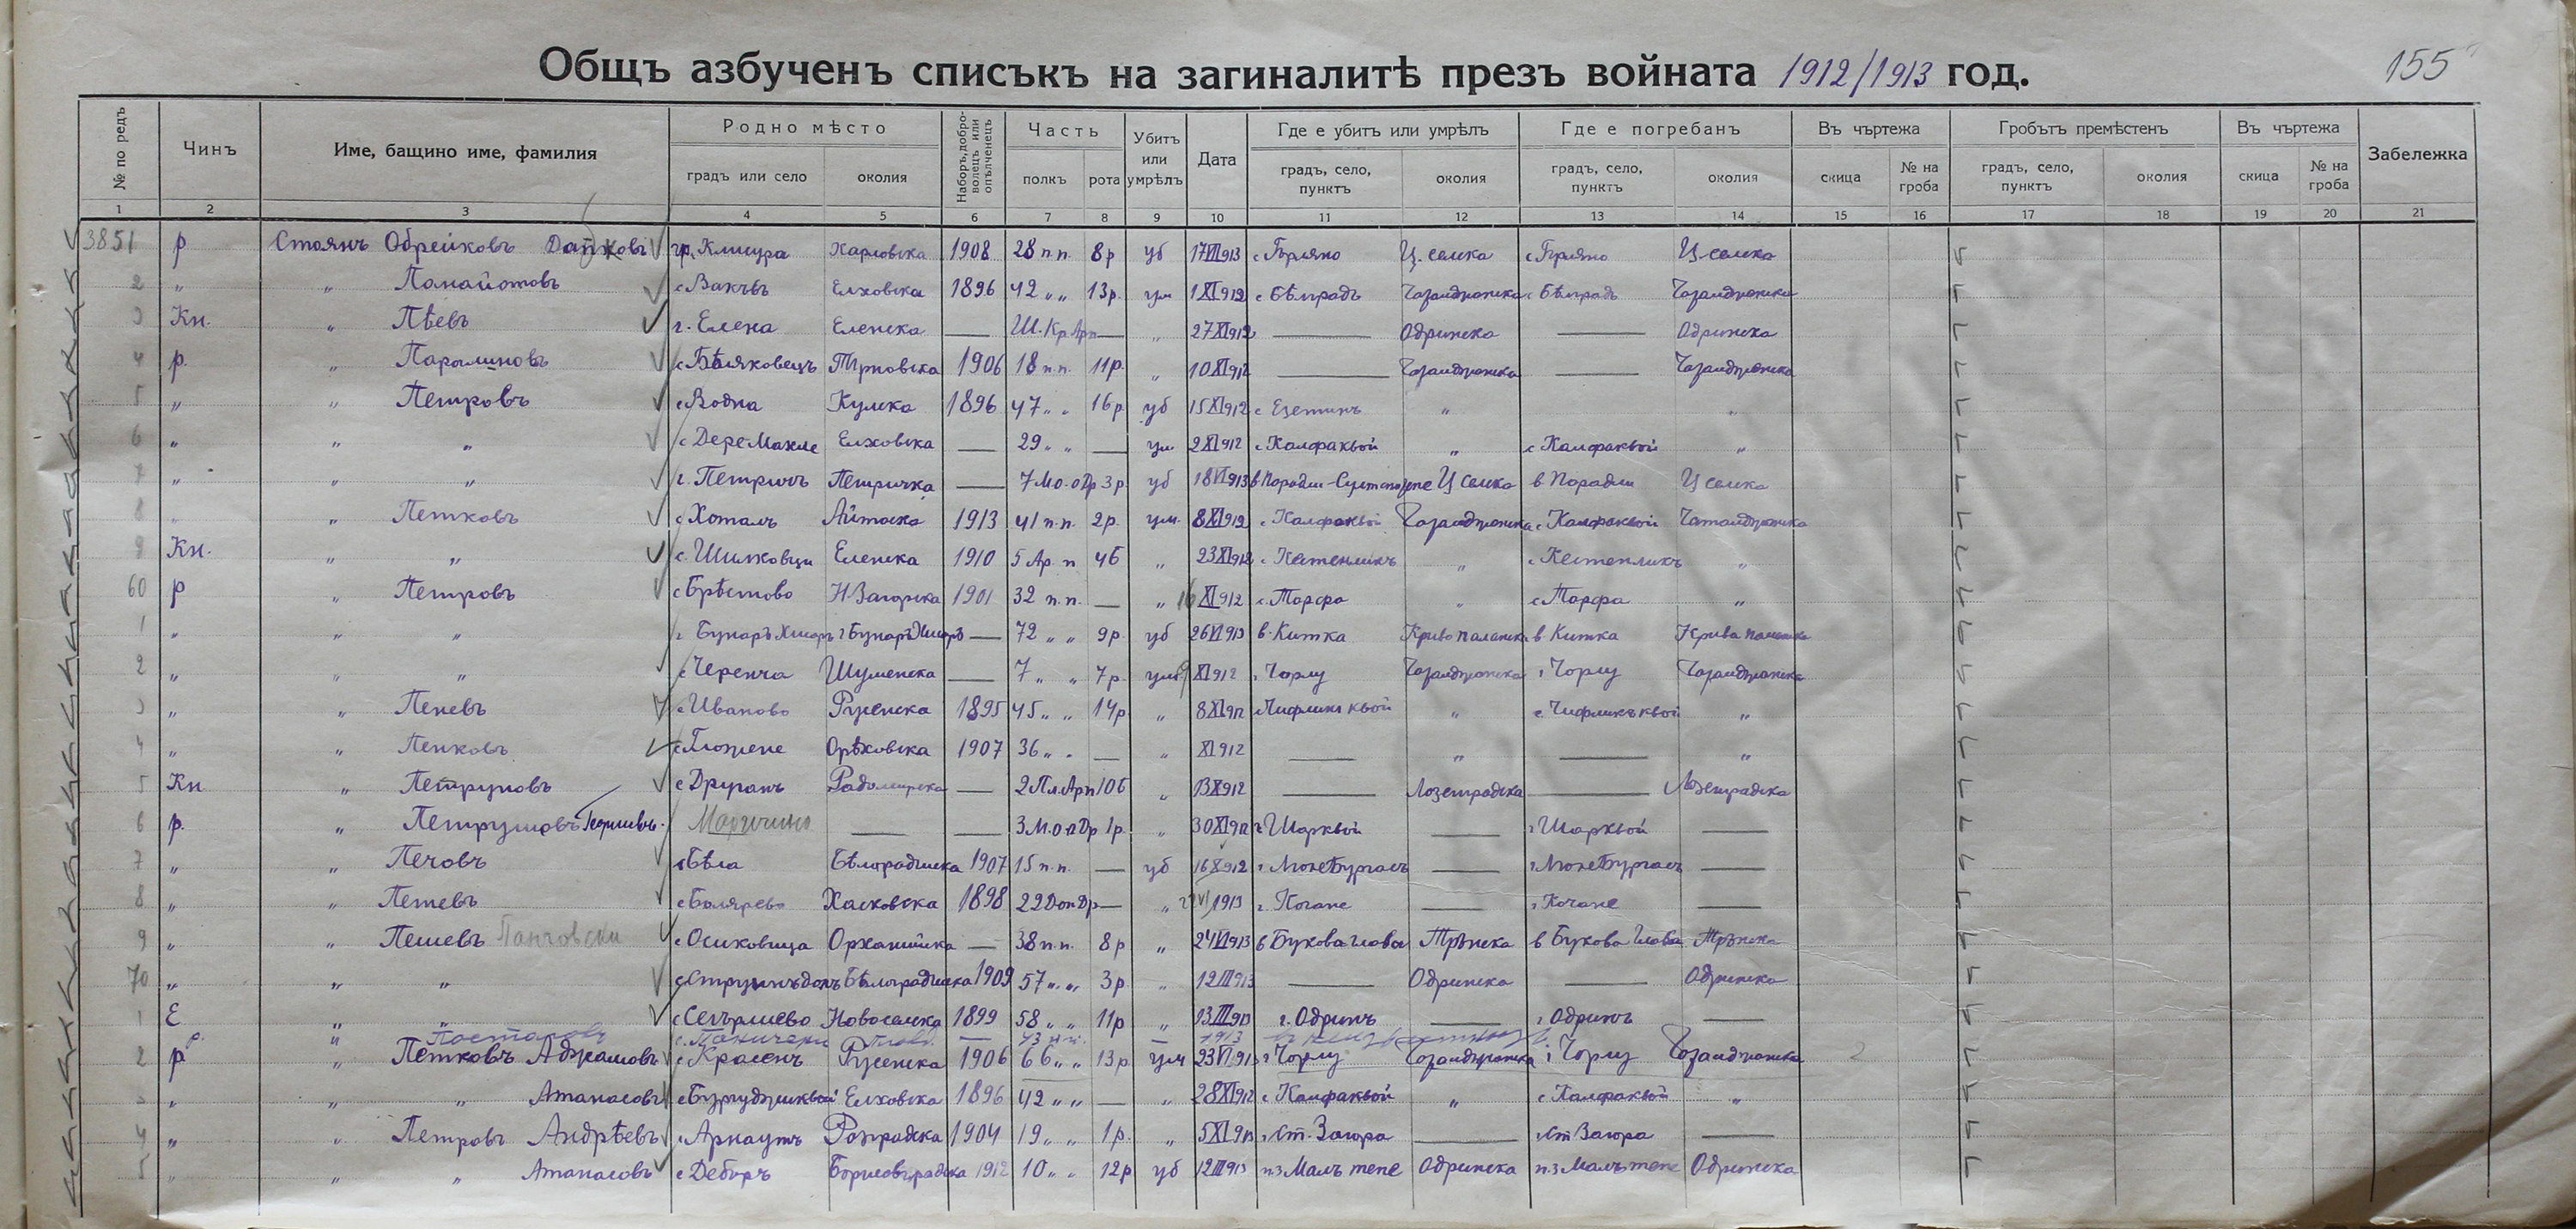 Общъ азбученъ списъкъ на загиналитѣ презъ войната 1912/1913 год. 155
№ по редъ Чинъ Име, бащино име, фамилия Родно мѣсто Наборъ, добро-волецъ или опълченецъ Часть Убитъ или умрѣлъ Дата Где е убитъ или умрѣлъ Где е погребанъ Въ чъртежа Гробътъ премѣстенъ Въ чъртежа Забележка
градъ или село околия полкъ рота градъ, село, пунктъ околия градъ, село, пунктъ околия скица № на гроба градъ, село, пунктъ околия скица № на гроба
1 2 3 4 5 6 7 8 9 10 11 12 13 14 15 16 17 18 19 20 21
3851 р Стоянъ Обрейковъ гр. Клисура Карловска 1908 28 п.п. 8р уб 17VII913 Ц. селска Ц селска
2 „ „ Панайотовъ с Вакъвъ Елховска 1896 42 „ „ 13р. ум 1XI912 с Бѣлградъ Чаталджанска с Бѣлградъ Чаталджанска
3 Кн. „ Пѣевъ г. Елена Еленска — — „ 27XI912 — Одринска — Одринска
4 р. „ с Бѣляковецъ Търновска 1906 18 п.п. 11р. „ 10XI912 — Чаталджанска — Чаталджанска
5 „ „ Петровъ с Водна Кулска 1896 47 „ „ 16р уб 15XI912 с Езетинъ „ „
6 „ „ „ с Дере Махле Елховска — 29 „ „ — ум 2XI912 с Калфакьой „ с Калфакьой „
7 „ „ „ г. Петричъ Петричка — 7 М.о.оДр 3р уб 18VI913 Ц селска в Парадли Ц селска
8 „ „ Петковъ с Хоталъ Айтоска 1913 41 п.п. 2р. ум. 8XI912 с Калфакьой Чаталджанска с Калфакьой Чаталджанска
9 Кн. „ „ с. Шилковци Еленска 1910 5 Ар. п 4б „ 23XI912 с Кестенликъ „ с Кестенликъ „
60 р „ Петровъ с Брѣстово Н Загорска 1901 32 п.п. — „ 16XI912 с. Тарфа „ с Тарфа „
1 „ „ „ г Бунаръ Хисаръ г Бунаръ Хисаръ — 72 „ „ 9р. уб 26VI913 в. Китка Криво паланска в. Китка Крива паланска
2 „ „ „ с Черенча Шуменска — 7 „ „ 7р. ум XI912 г. Чорлу Чаталджанска г Чорлу Чаталджанска
3 „ „ Пеневъ с Иваново Русенска 1895 45 „ „ 14р „ 8XI912 с Чифликъ кьой „ с. Чифликъ кьой „
4 „ „ Пенковъ с Гложене Орѣховска 1907 36 „ „ — „ XI912 — „ — „
5 Кн „ Петруновъ с Друганъ Радомирска — 2 Пл.Арп 10б „ 13X912 — Лозеградска — Лозеградска
6 р. „ Георгиевъ. Маричино — — 3 М.о.оДр 1р. „ 30XI912 г Шаркьой — г Шаркьой —
7 „ „ Печовъ с Бѣла Бѣлоградчиска 1907 15 п.п. — уб 16X912 г Люле Бургасъ — г Люле Бургасъ —
8 „ „ Петевъ с Болярево Хасковска 1898 22 Доп Др — „ VI 1913 г. Кочане — г Кочане —
9 „ „ Пешевъ Панчовски с Осиковица Орханийска — 38 п.п. 8р „ 24VI913 в Букова глава Трънска в Букова Глава Трънска
70 „ „ „ Бѣлоградчиска 1909 57 „ „ 3р „ 12III913 — Одринска — Одринска
1 Е „ „ с Сегърлиево Новоселска 1899 58 „ „ 11р „ 13III913 г. Одринъ — г Одринъ —
р. „ с. Паничери Плов. — 43 п.п. — 1913
2 р „ Петковъ Аджамовъ с Красенъ Русенска 1906 66 „ „ 13р ум 23VI913 г Чорлу Чаталджанска г Чорлу Чаталджанска 2
3 „ „ „ Атанасовъ Елховска 1896 42 „ „ — „ 28XI912 с Калфакьой „ с. Калфакьой „
4 „ „ Петровъ Андрѣевъ с Арнаутъ Разградска 1904 19 „ „ 1р. „ 5XI913 г Ст. Загора — г Ст Загора —
5 „ „ „ Атанасовъ с Дебъръ Борисовградска 1912 10 „ „ 12р уб 12III913 п.з Малъ тепе Одринска п.з Малъ тепе Одринска